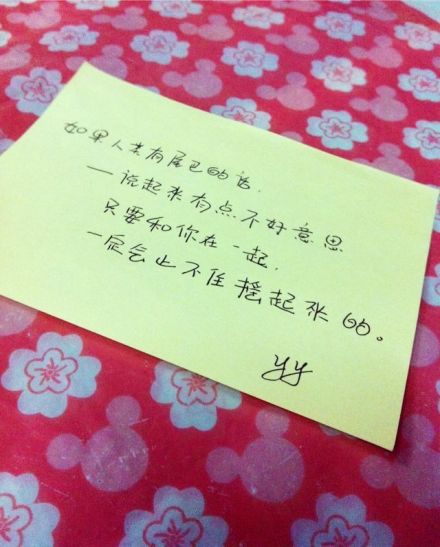 如果人类有尾巴的话.
一说起来有点不好意思
只要和你在一起.
一定会止不住摇起来的。
yy